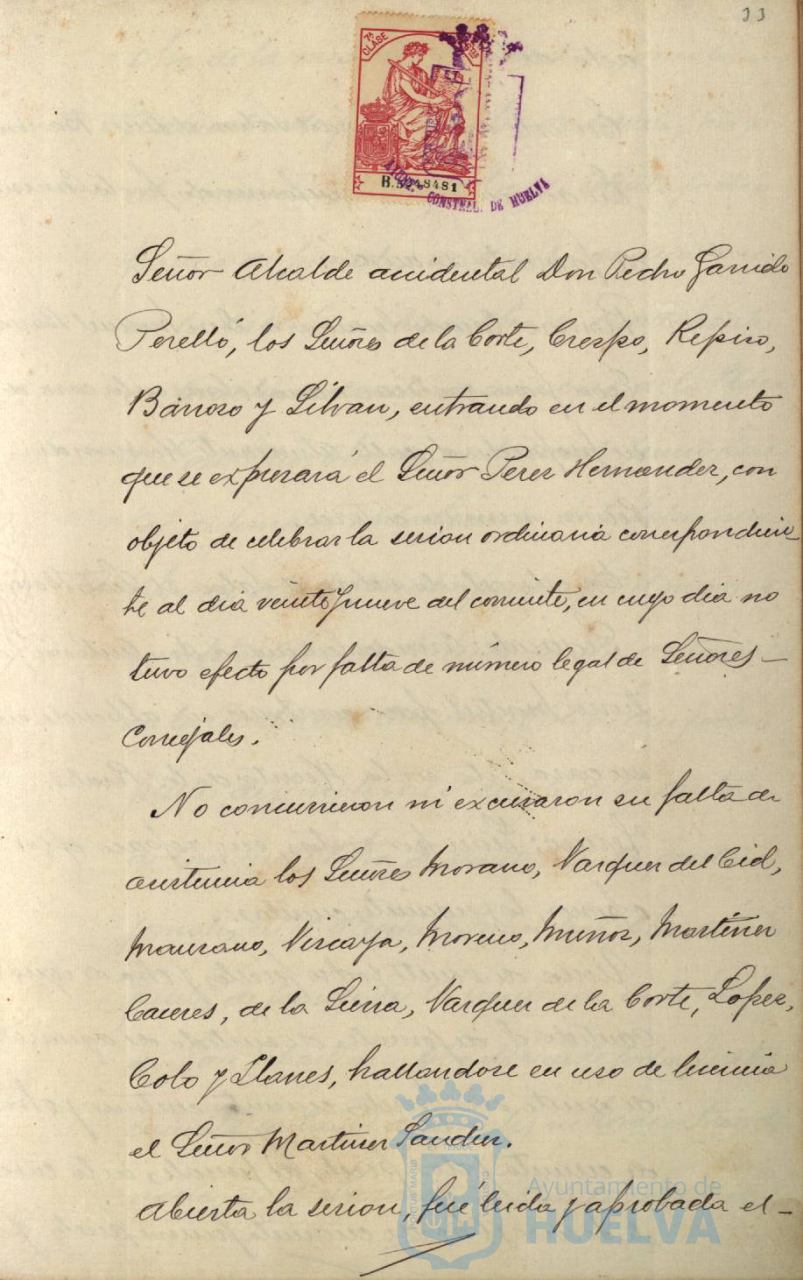 33
7ª CLASE
B.5248481
AYUNT. CONSTNAL. DE HUELVA
Señor Alcalde accidental Don Pedro Garrido
Perelló, los Señores de la Corte, Crespo, Repiso,
Barroso y Silvan, entrando en el momento
que se expresará el Señor Perez Hernandez, con
objeto de celebrar la sesion ordinaria correspondien-
te al dia veintiynueve del corriente, en cuyo dia no
tuvo efecto por falta de número legal de Señores
Concejales.
No concurrieron ni excusaron su falta de
asistencia los Señores Morano, Vazquez del Cid,
Manzano, Vizcaya, Moreno, Muñoz, Martinez
Caceres, de la Sierra, Vazquez de la Corte, Lopez,
Colo y Llanes, hallandose en uso de licencia
el Señor Martinez Sanchez.
Abierta la sesion, fué leida y aprobada el
Ayuntamiento de
HUELVA